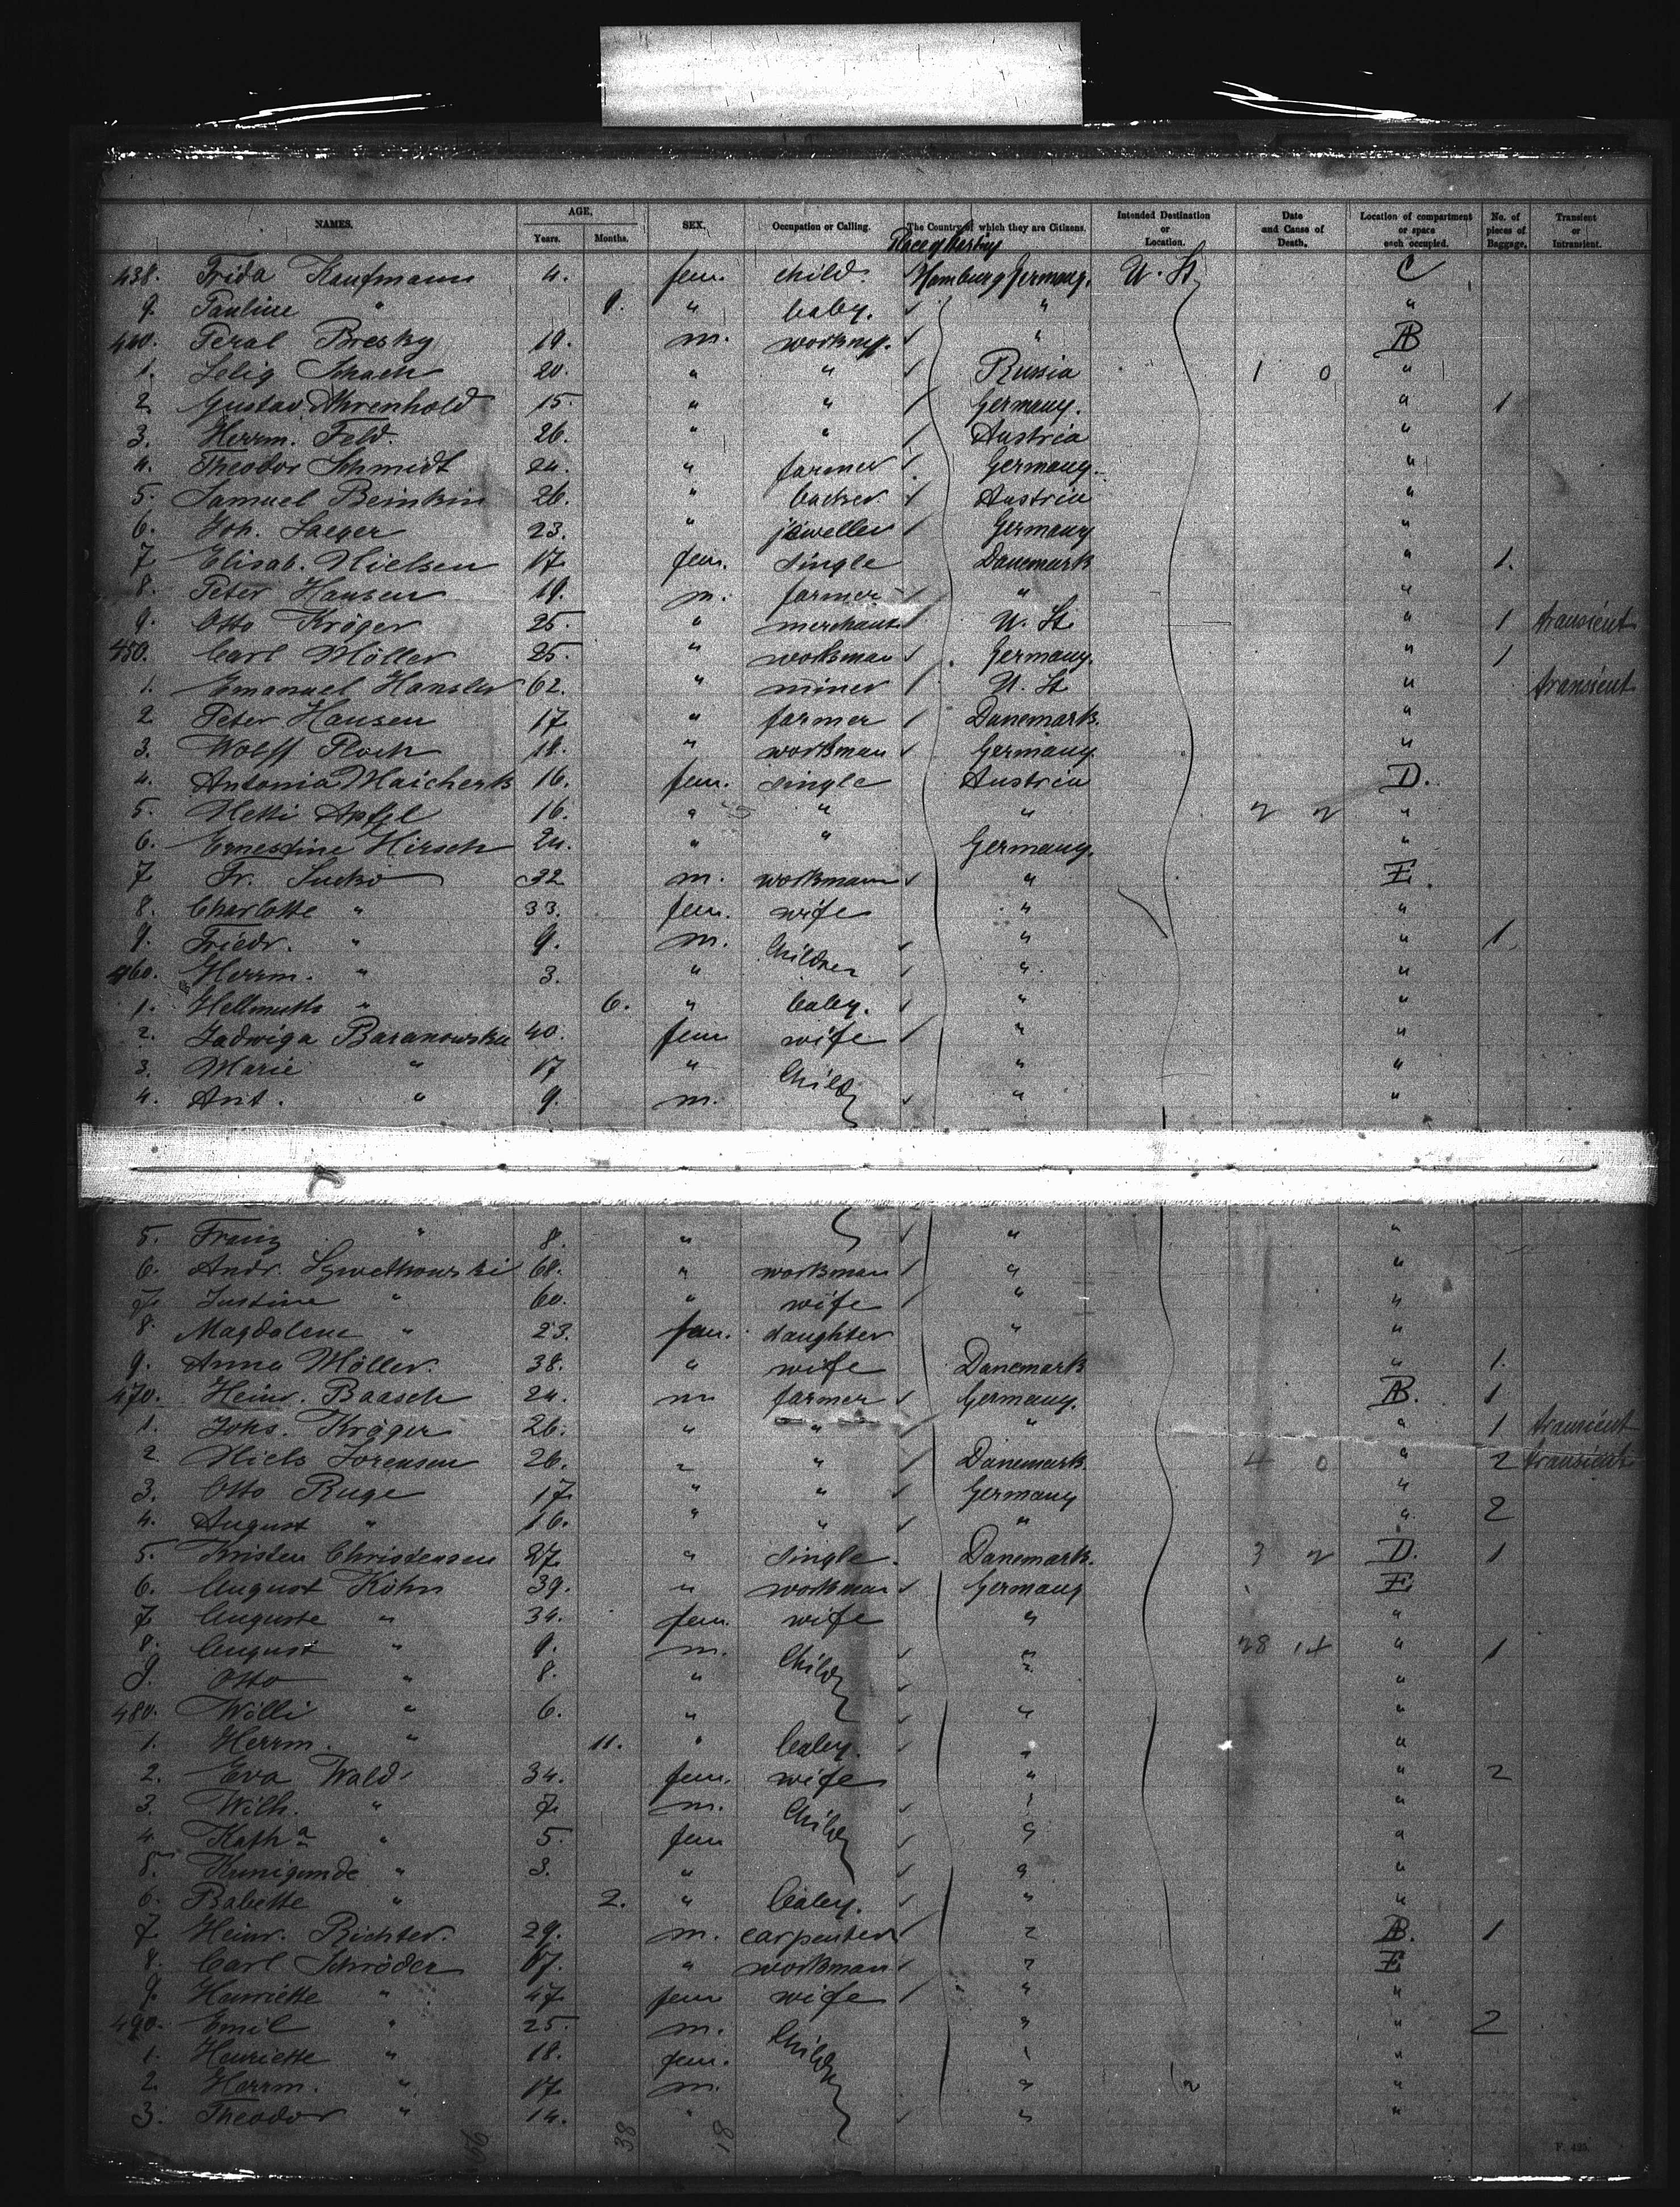 NAMES. AGE, Years. Months. SEX. Occupation or Calling. The Country of which they are Citizens. Intended Destination or Location. Date and Cause of Death. Location of compartment or space each occupied. No. of pieces of Baggage. Transient or Intransient.
Place of
438. Frida Kaufmann 4. fem. child. Hamburg Germany. U. St. C
9. Pauline " 9. " baby. " "
440. Peral Bresky 19. m. workm. " AB
1. Selig Schach 20. " " Russia 1 0 "
2. Gustav Ahrenhold 15. " " Germany. " 1
3. Herrm. Feld. 26. " " Austria "
4. Theodor Schmidt 24. " farmer Germany. "
5. Samuel Beinkin 26. " backer Austria "
6. Joh. Saeger 23. " jeweller Germany "
7. Elisab. Nielsen 17. fem. single Danemark " 1.
8. Peter Hansen 19. m. farmer " "
9. Otto Kröger 25. " merchant U. St. " 1 transient
450. Carl Möller 25. " workman Germany. " 1
1. Emanuel Hansler 62. " miner U. St " transient
2. Peter Hansen 17 " farmer Danemark. "
3. Wolff Floch 18. " workman Germany "
4. Antonia Maicherk 16. fem. single Austria D.
5. Netti Apfel 16. " " " 2 2 "
6. Ernestine Hirsch 24. " " Germany. "
7. Fr. Sucko 32 m. workmann " E.
8. Charlotte " 33. fem. wife " "
9. Friedr. " 9. m. Children " " 1.
460. Herrm. " 3. " " "
1. Hellmuth " 6. " baby. " "
2. Jadwiga Baranowska 40. fem wife " "
3. Marie " 17 " Child " "
4. Ant. " 9. m. " "
5. Franz " 8. " " "
6. Andr. Szwetkowski 68. " workman " "
7. Justine " 60. " wife " "
8. Magdalene " 23. fem. daughter " "
9. Anna Möller. 38. " wife Danemark " 1.
470. Heinr. Baasch 24. m farmer Germany. AB. 1
1. Johs. Kröger 26. " " " " 1 transient
2. Niels Jorensen 26. " " Danemark. 4 0 " 2 transient
3. Otto Ruge 17 " " Germany "
4. August " 16. " " " " 2
5. Kristen Christensen 27 " single. Danemark. 3 2 D. 1
6. August Köhn 39. " workman Germany E.
7. Auguste " 34. fem. wife " "
8. August " 9. m. Child " 28 14 " 1
9. Otto " 8. " " "
480. Willi " 6. " " "
1. Herrm. " 11. " baby. " "
2. Eva Wald 34. fem. wife " " 2
3. Wilh. " 7. m. Child " "
4. Katha " 5. fem " "
5. Kunigunde " 3. " " "
6. Babette " 2. " baby. " "
7. Heinr. Richter. 29. m. carpenter " AB. 1
8. Carl Schröder 67. " workman " E.
9. Henriette " 47 fem wife " "
490. Emil " 25. m. Child " " 2
1. Henriette " 18. fem. " "
2. Herrm. " 17. m. " "
3. Theodor " 14. " " "
56 38 18
F. 425.